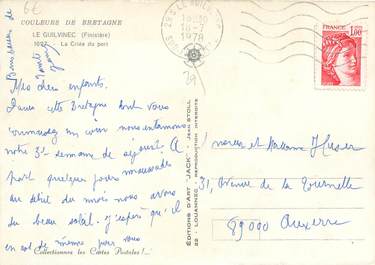 6€
COULEURS DE BRETAGNE
LE GUILVINEC (Finistère)
La Criée du port
Mes chers enfants.
Dans cette Bretagne dont vous
connaissez un coin nous entamons
notre 3e semaine de séjour. A
part quelques jours maussades
au début du mois nous avons
du beau soleil. J'espère qu'il
en est de même pour vous
Collectionnez les Cartes Postales !...
ÉDITIONS D'ART "JACK"
JEAN STOLL
LOUANNEC
REPRODUCTION INTERDITE
29
16-7
1978
FRANCE
1,00
et Madame
31, Avenue de la Tournelle
89000 Auxerre